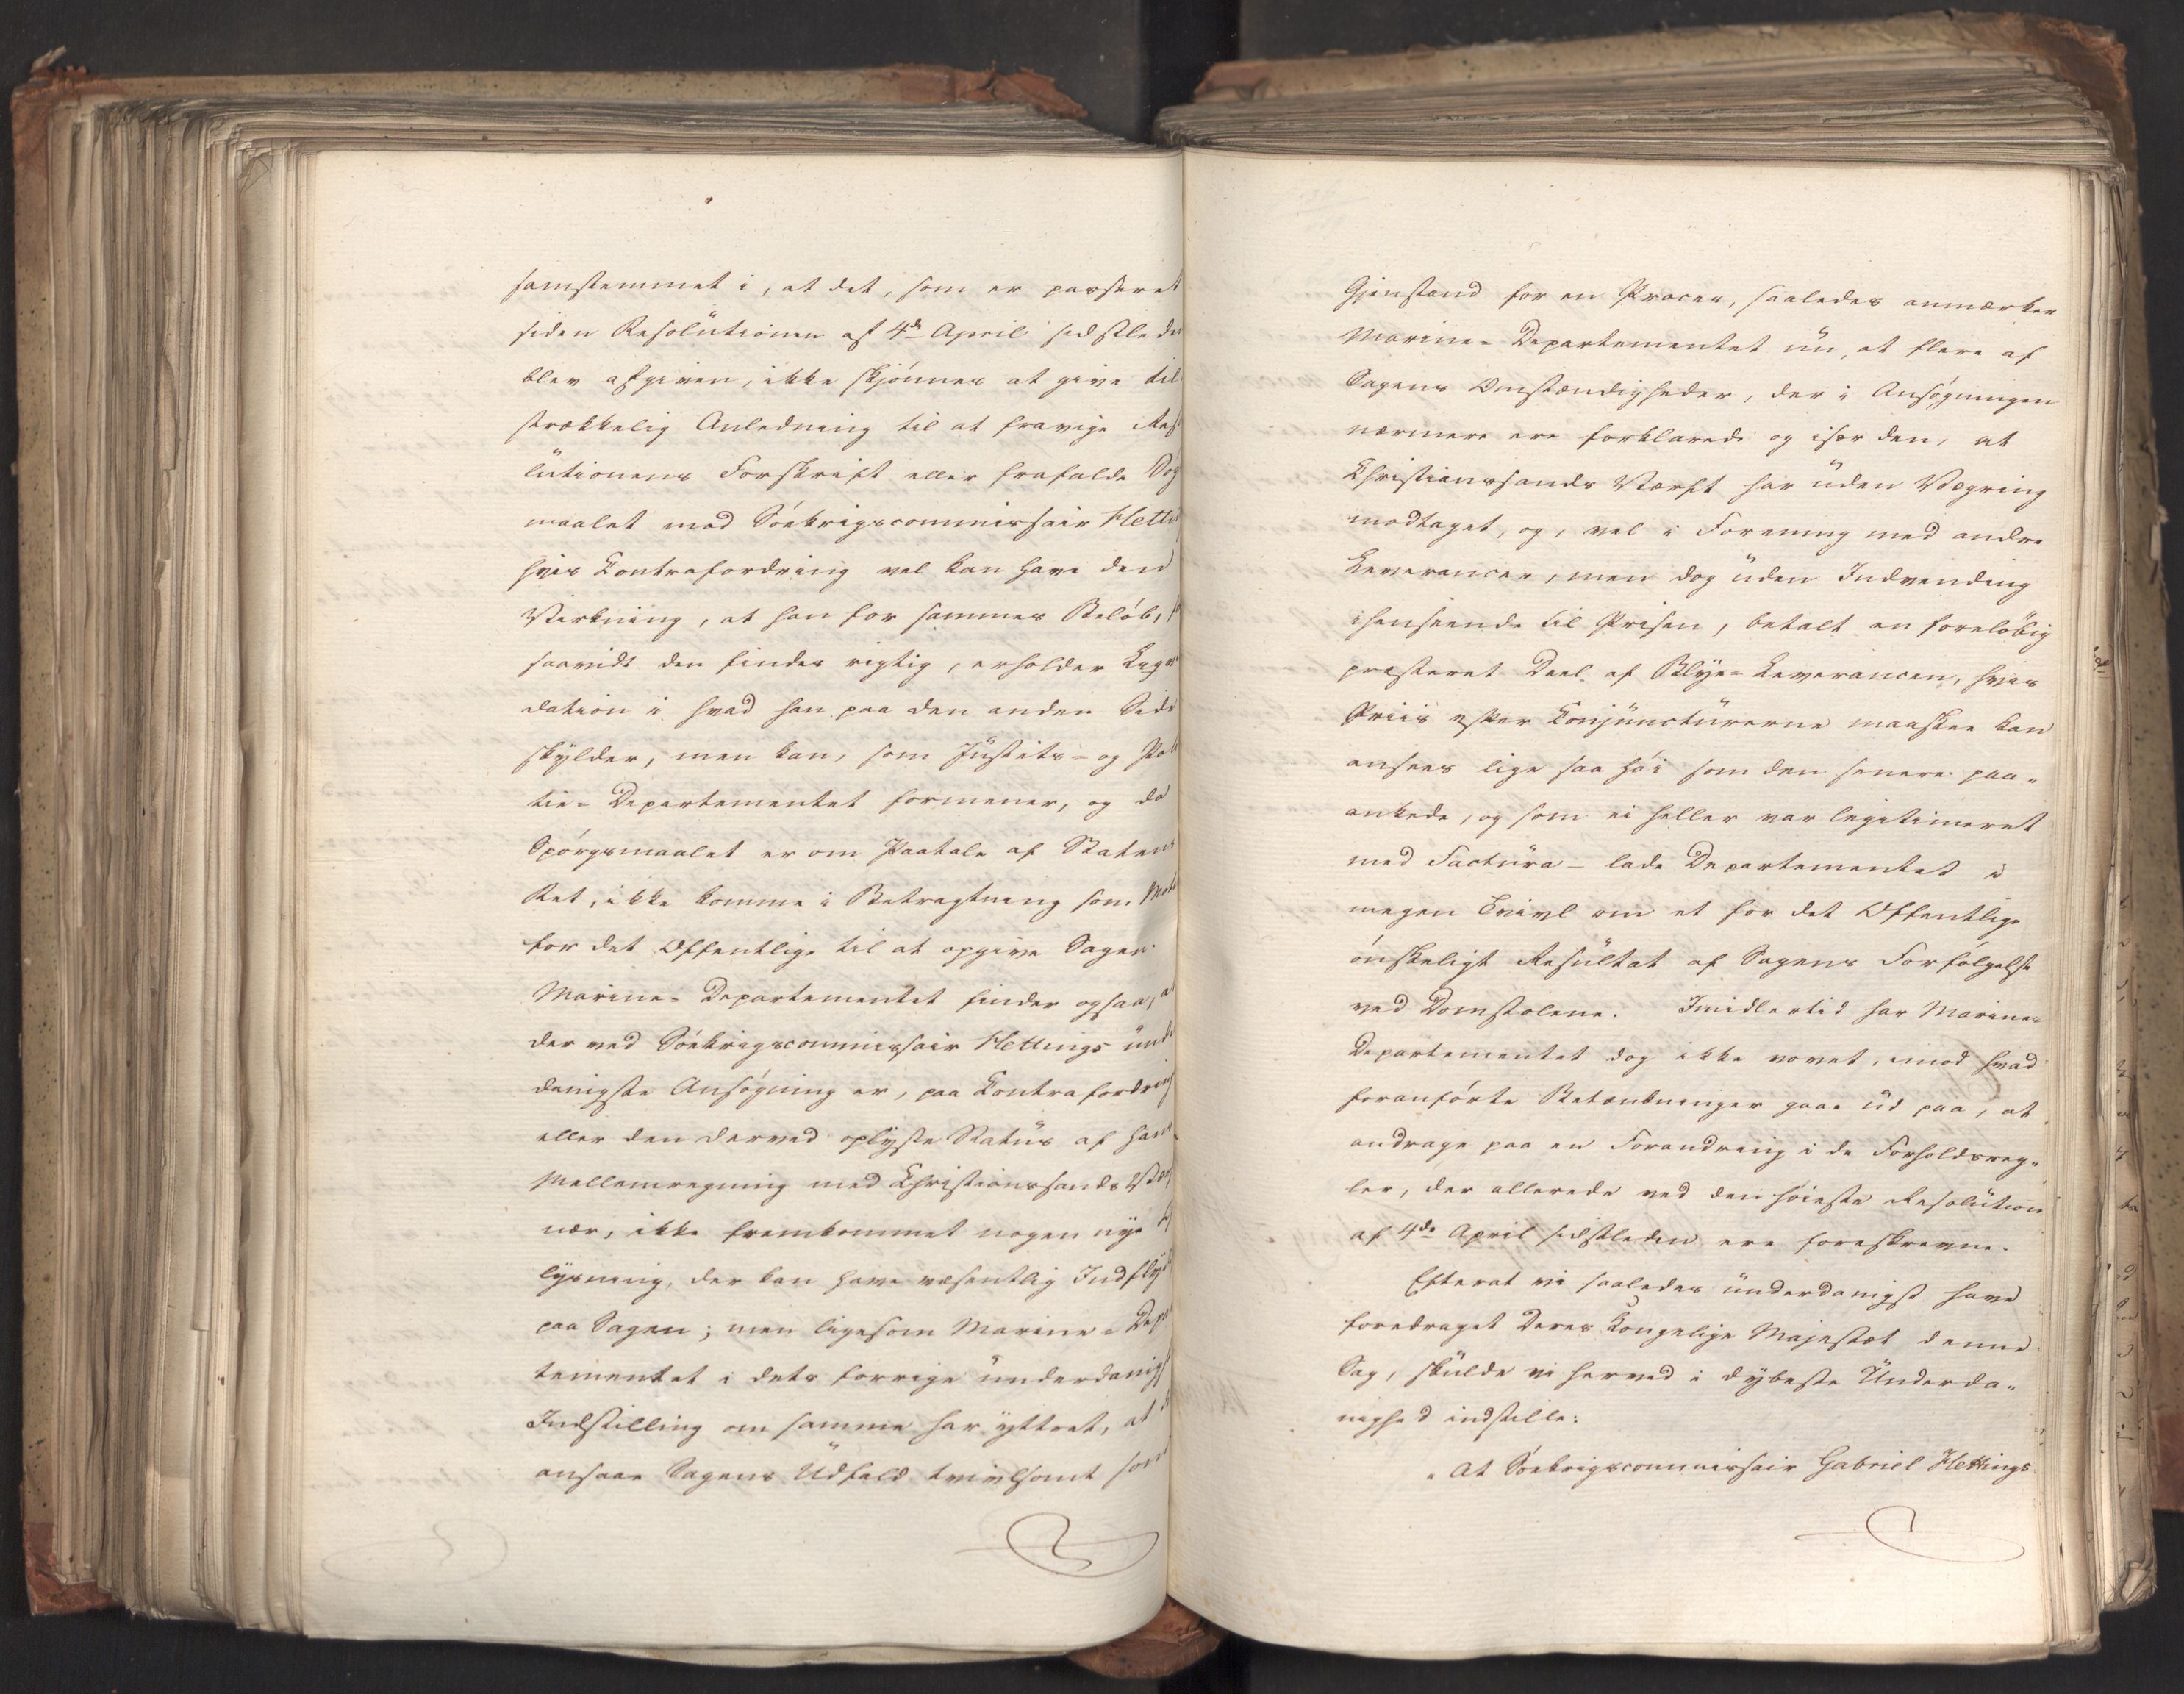 samstemmet i, at det, som er passeret
siden Resolutionen af 4de April sidstleden
blev afgiven, ikke skjönnes at give til-
strækkelig Anledning til at fravige Reso
lutionens Forskrift eller frafalde Søg
maalet mod Söekrigscommissair Hetting
hvis Contrafordring vel kan have den
Virkning, at han for sammes Beløb,
saavidt den findes rigtig, erholder Liqvi
dation i hvad han paa den anden Side
skylder, men kan, som Justits- og Poli
tie-Departementet formener, og da
Spörgsmaalet er om Paatale af Statens
Ret, ikke komme i Betragtning som Motiv
for det Offentlige til at opgive Sagen.
Marine-Departementet finder ogsaa, at
der ved Söekrigscommissair Hettings under
danigste Ansøgning er, paa Contrafordring
eller den derved oplyste Status af hans
Mellemregning med Christianssands Værf
nær, ikke fremkommet nogen nye Op
lysning, der kan have væsentlig Indflyd
paa Sagen; men ligesom Marine-Depar
tementet i dets forrige underdanigst
Indstilling om samme har yttret, at
ansaae Sagens Udfald tvivlsomt som
Gjenstand for en Proces, saaledes anmærker
Marine-Departementet nu, at flere af
Sagens Omstændigheder, der i Ansøgningen
nærmere ere forklarede og især den, at
Christianssands Værft har uden Vægring
modtaget, og, vel i Forening med andre
Leverancer, men dog uden Indvending
ihenseende til Prisen, betalt en foreløbig
præsteret Deel af Blye-Leverancen, hvis
Priis efter Conjuncturerne maaskee kan
ansees lige saa høi som den senere paa-
ankede, og som ei heller var legitimeret
med Factura – lade Departementet i
megen Tvivl om et for det Offentlige
ønskeligt Resultat af Sagens Forfølgelse
ved Domstolene. Imidlertid har Marine-
Departementet dog ikke vovet, imod hvad
foranförte Betænkninger gaae ud paa, at
andrage paa en Forandring i de Forholdsreg-
ler, der allerede ved den høieste Resolution
af 4de April sidstleden ere foreskrevne.
Efterat vi saaledes underdanigst have
foredraget Deres Kongelige Majestæt denne
Sag, skulde vi herved i dybeste Underda-
nighed indstille:
„At Söekrigscommissair Gabriel Hettings